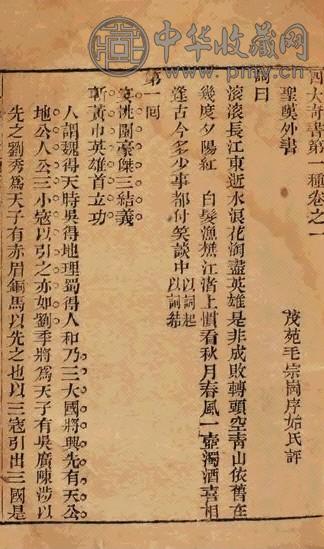 中华收藏网
四大奇書第一種卷之一
聖歎外書　茂苑毛宗崗序始氏評
詞曰
滾滾長江東逝水浪花淘盡英雄是非成敗轉頭空青山依舊在
幾度夕陽紅　白髮漁樵江渚上慣看秋月春風一壺濁酒喜相
逢古今多少事都付笑談中以詞起以詞結
第一回
宴桃園豪傑三結義
斬黃巾英雄首立功
人謂魏得天時吳得地理蜀得人和乃三大國將興先有天公
地公人公三小寇以引之亦如劉季將爲天子有吳廣陳涉以
先之劉秀爲天子有赤眉銅馬以先之也以三寇引出三國是